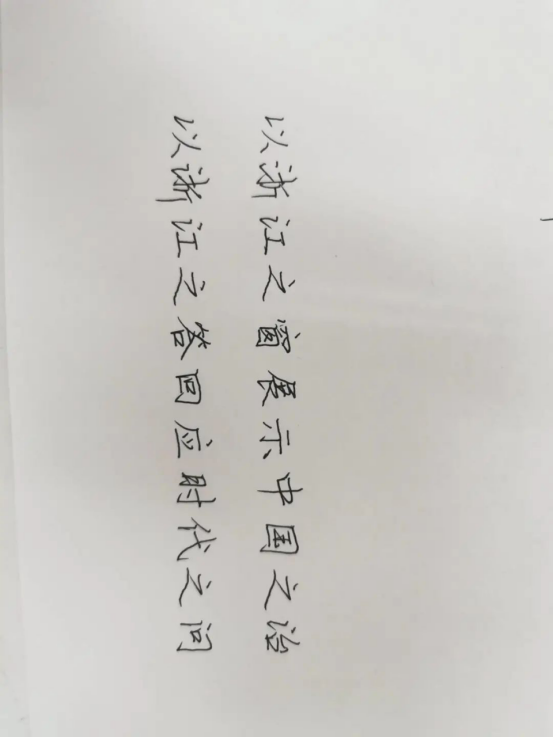 以浙江之窗展示中国之治
以浙江之答回应时代之问